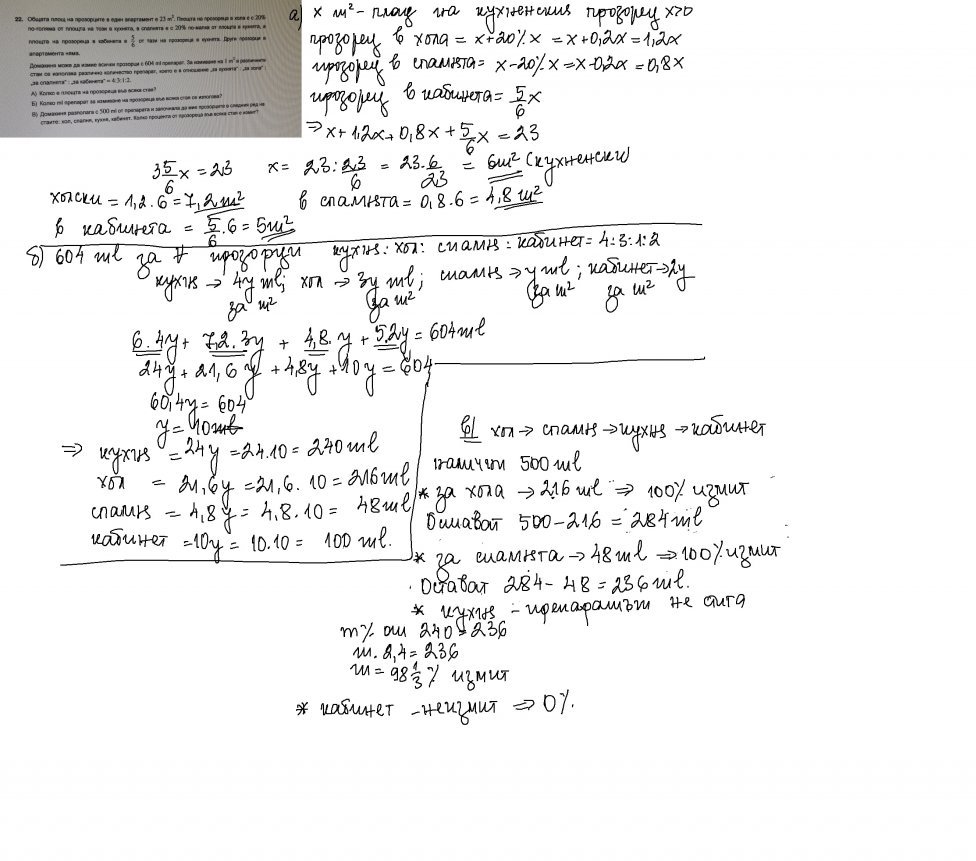 22. Общата площ на прозорците в един апартамент е 23 m². Площта на прозореца в хола е с 20%
по-голяма от площта на този в кухнята, в спалнята е с 20% по-малка от площта в кухнята, а
площта на прозореца в кабинета е 5/6 от тази на прозореца в кухнята. Други прозорци в
апартамента няма.
Домакиня може да измие всички прозорци с 604 ml препарат. За измиване на 1 m² в различните
стаи се използва различно количество препарат, което е в отношение „за кухнята“ : „за хола“ :
„за спалнята“ : „за кабинета“ = 4:3:1:2.
А) Колко е площта на прозореца във всяка стая?
Б) Колко ml препарат за измиване на прозореца във всяка стая се използва?
В) Домакиня разполага с 500 ml от препарата и започнала да мие прозорците в следния ред на
стаите: хол, спалня, кухня, кабинет. Колко процента от прозореца във всяка стая е измит?
а) x m² - площ на кухненския прозорец x>0
прозорец в хола = x+20% x = x+0,2x = 1,2x
прозорец в спалнята = x-20% x = x-0,2x = 0,8x
прозорец в кабинета = 5/6 x
⇒ x+1,2x+0,8x+5/6 x = 23
3 5/6 x = 23 x = 23 : 23/6 = 23.6/23 = 6m² (кухненски)
холски = 1,2.6 = 7,2m² в спалнята = 0,8.6 = 4,8 m²
в кабинета = 5/6 .6 = 5m²
б) 604 ml за ∀ прозорци кухня : хол : спалня : кабинет = 4:3:1:2
кухня → 4y ml; хол → 3y ml; спалня → y ml; кабинет → 2y
за m² за m² за m² за m²
6.4y + 7,2.3y + 4,8.y + 5.2y = 604ml
24y + 21,6y + 4,8y + 10y = 604
60,4y = 604
y = 10ml
⇒ кухня = 24y = 24.10 = 240 ml
хол = 21,6y = 21,6.10 = 216 ml
спалня = 4,8y = 4,8.10 = 48 ml
кабинет = 10y = 10.10 = 100 ml.
в) хол → спалня → кухня → кабинет
налични 500 ml
* за хола → 216 ml ⇒ 100% измит
Остават 500-216 = 284 ml
* за спалнята → 48 ml ⇒ 100% измит
Остават 284-48 = 236 ml.
* кухня - препаратът не стига
m% от 240 = 236
m.2,4 = 236
m = 98 1/3 % измит
* кабинет - неизмит ⇒ 0%.